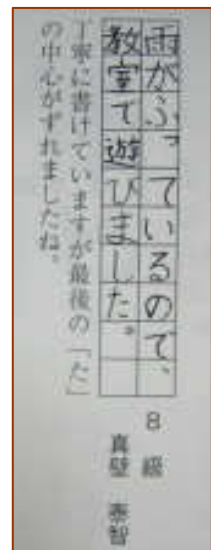 雨がふっているので、
教室で遊びました。
丁寧に書けていますが最後の「た」
の中心がずれましたね。
8級
真壁 泰智